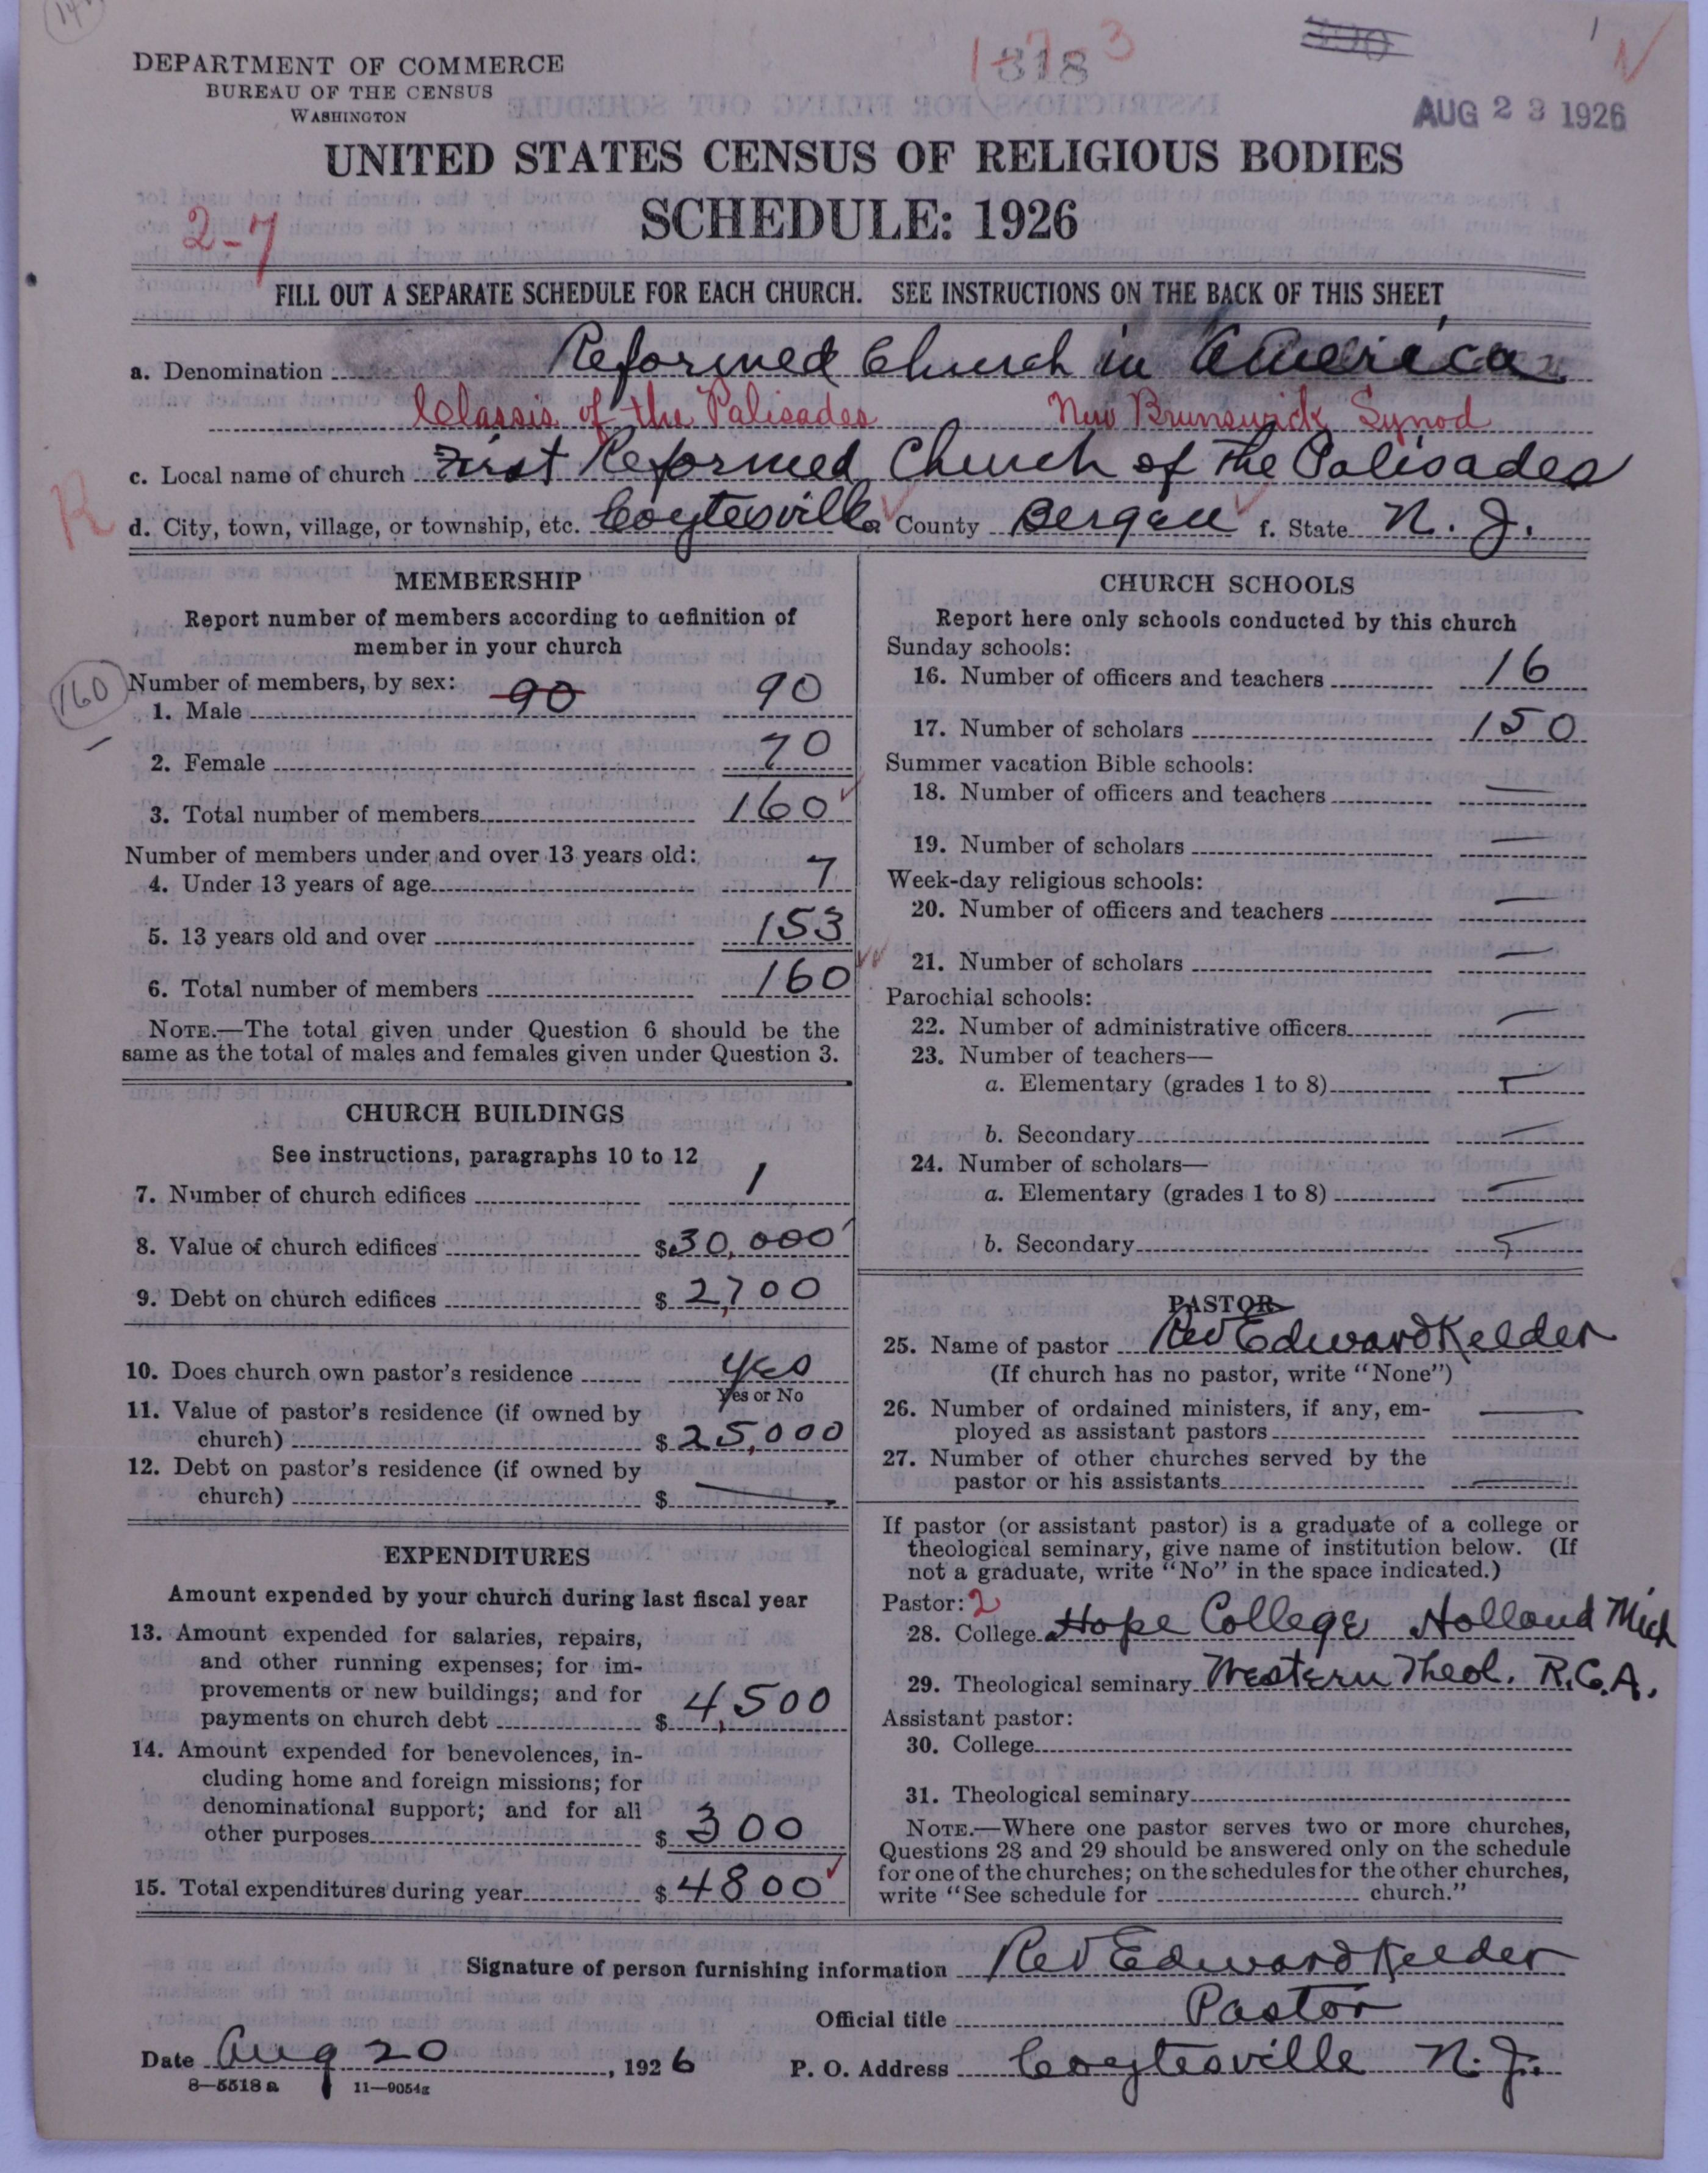 DEPARTMENT OF COMMERCE
BUREAU OF THE CENSUS
WASHINGTON
1-7-3
818
390
AUG 23 1926
UNITED STATES CENSUS OF RELIGIOUS BODIES
SCHEDULE: 1926
2-7
FILL OUT A SEPARATE SCHEDULE FOR EACH CHURCH. SEE INSTRUCTIONS ON THE BACK OF THIS SHEET
a. Denomination Reformed Church in America
Classis of the Palisades New Brunswick Synod
c. Local name of church First Reformed Church of the Palisades
R
d. City, town, village, or township, etc. Coytesville e. County Bergen f. State N. J.
MEMBERSHIP
Report number of members according to definition of
member in your church
160
Number of members, by sex:
1. Male 90 90
2. Female 70
3. Total number of members 160
Number of members under and over 13 years old:
4. Under 13 years of age 7
5. 13 years old and over 153
6. Total number of members 160
NOTE.—The total given under Question 6 should be the
same as the total of males and females given under Question 3.
CHURCH BUILDINGS
See instructions, paragraphs 10 to 12
7. Number of church edifices 1
8. Value of church edifices $ 30,000
9. Debt on church edifices $ 2,700
10. Does church own pastor's residence yes
Yes or No
11. Value of pastor's residence (if owned by
church) $ 25,000
12. Debt on pastor's residence (if owned by
church) $ —
EXPENDITURES
Amount expended by your church during last fiscal year
13. Amount expended for salaries, repairs,
and other running expenses; for im-
provements or new buildings; and for
payments on church debt $ 4,500
14. Amount expended for benevolences, in-
cluding home and foreign missions; for
denominational support; and for all
other purposes $ 300
15. Total expenditures during year $ 4800
CHURCH SCHOOLS
Report here only schools conducted by this church
Sunday schools:
16. Number of officers and teachers 16
17. Number of scholars 150
Summer vacation Bible schools:
18. Number of officers and teachers —
19. Number of scholars —
Week-day religious schools:
20. Number of officers and teachers —
21. Number of scholars —
Parochial schools:
22. Number of administrative officers —
23. Number of teachers—
a. Elementary (grades 1 to 8) —
b. Secondary —
24. Number of scholars—
a. Elementary (grades 1 to 8) —
b. Secondary —
PASTOR
25. Name of pastor Rev Edward Kelder
(If church has no pastor, write "None")
26. Number of ordained ministers, if any, em-
ployed as assistant pastors —
27. Number of other churches served by the
pastor or his assistants —
If pastor (or assistant pastor) is a graduate of a college or
theological seminary, give name of institution below. (If
not a graduate, write "No" in the space indicated.)
Pastor: 2
28. College Hope College Holland Mich
29. Theological seminary Western Theol. R.C.A.
Assistant pastor:
30. College
31. Theological seminary
NOTE.—Where one pastor serves two or more churches,
Questions 28 and 29 should be answered only on the schedule
for one of the churches; on the schedules for the other churches,
write "See schedule for church."
Signature of person furnishing information Rev Edward Kelder
Official title Pastor
Date Aug 20, 1926 P. O. Address Coytesville N. J.
8—5518 a 11—9054a